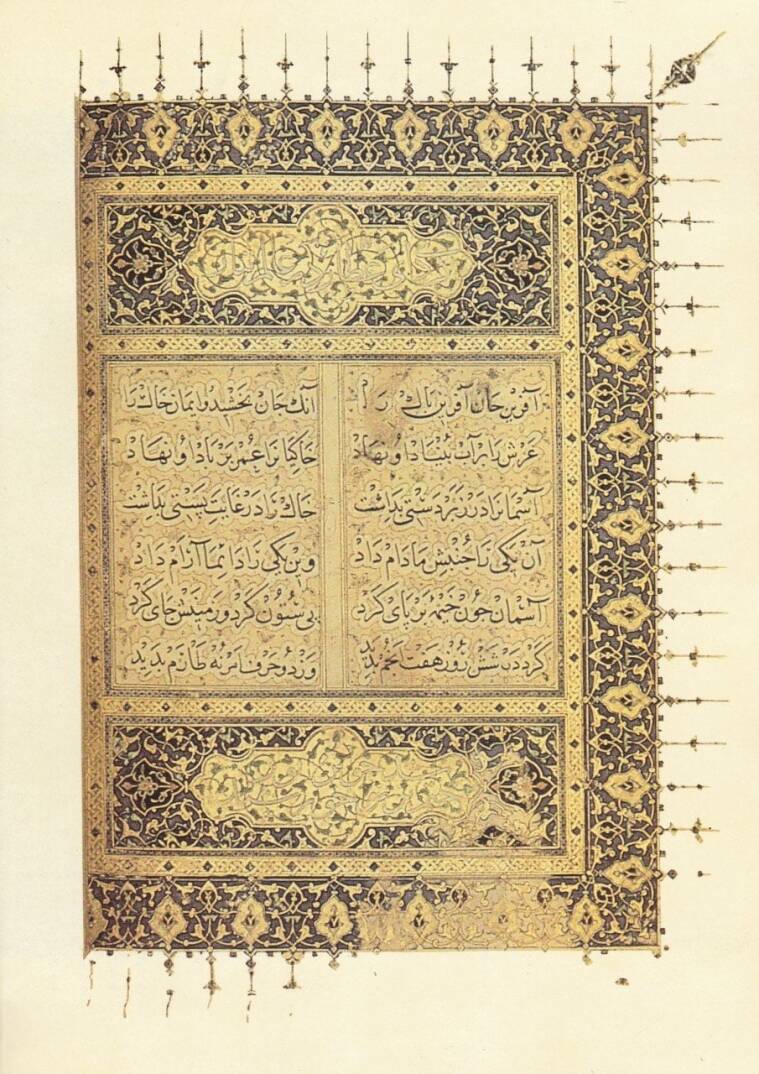 آفرین جان آفرین پاک را آنک جان بخشید و ایمان خاک را
عرش را بر آب بنیاد او نهاد خاکیانرا عمر بر باد او نهاد
آسمانرا در زبردستی بداشت خاک را در غایت پستی بداشت
آن یکی را جنبش مادام داد وین یکی را دایما آرام داد
آسمان چون خیمهٔ بر پای کرد بی ستون کرد و زمینش جای کرد
کرد در شش روز هفت انجم پدید وز دو حرف امر نه طارم پدید